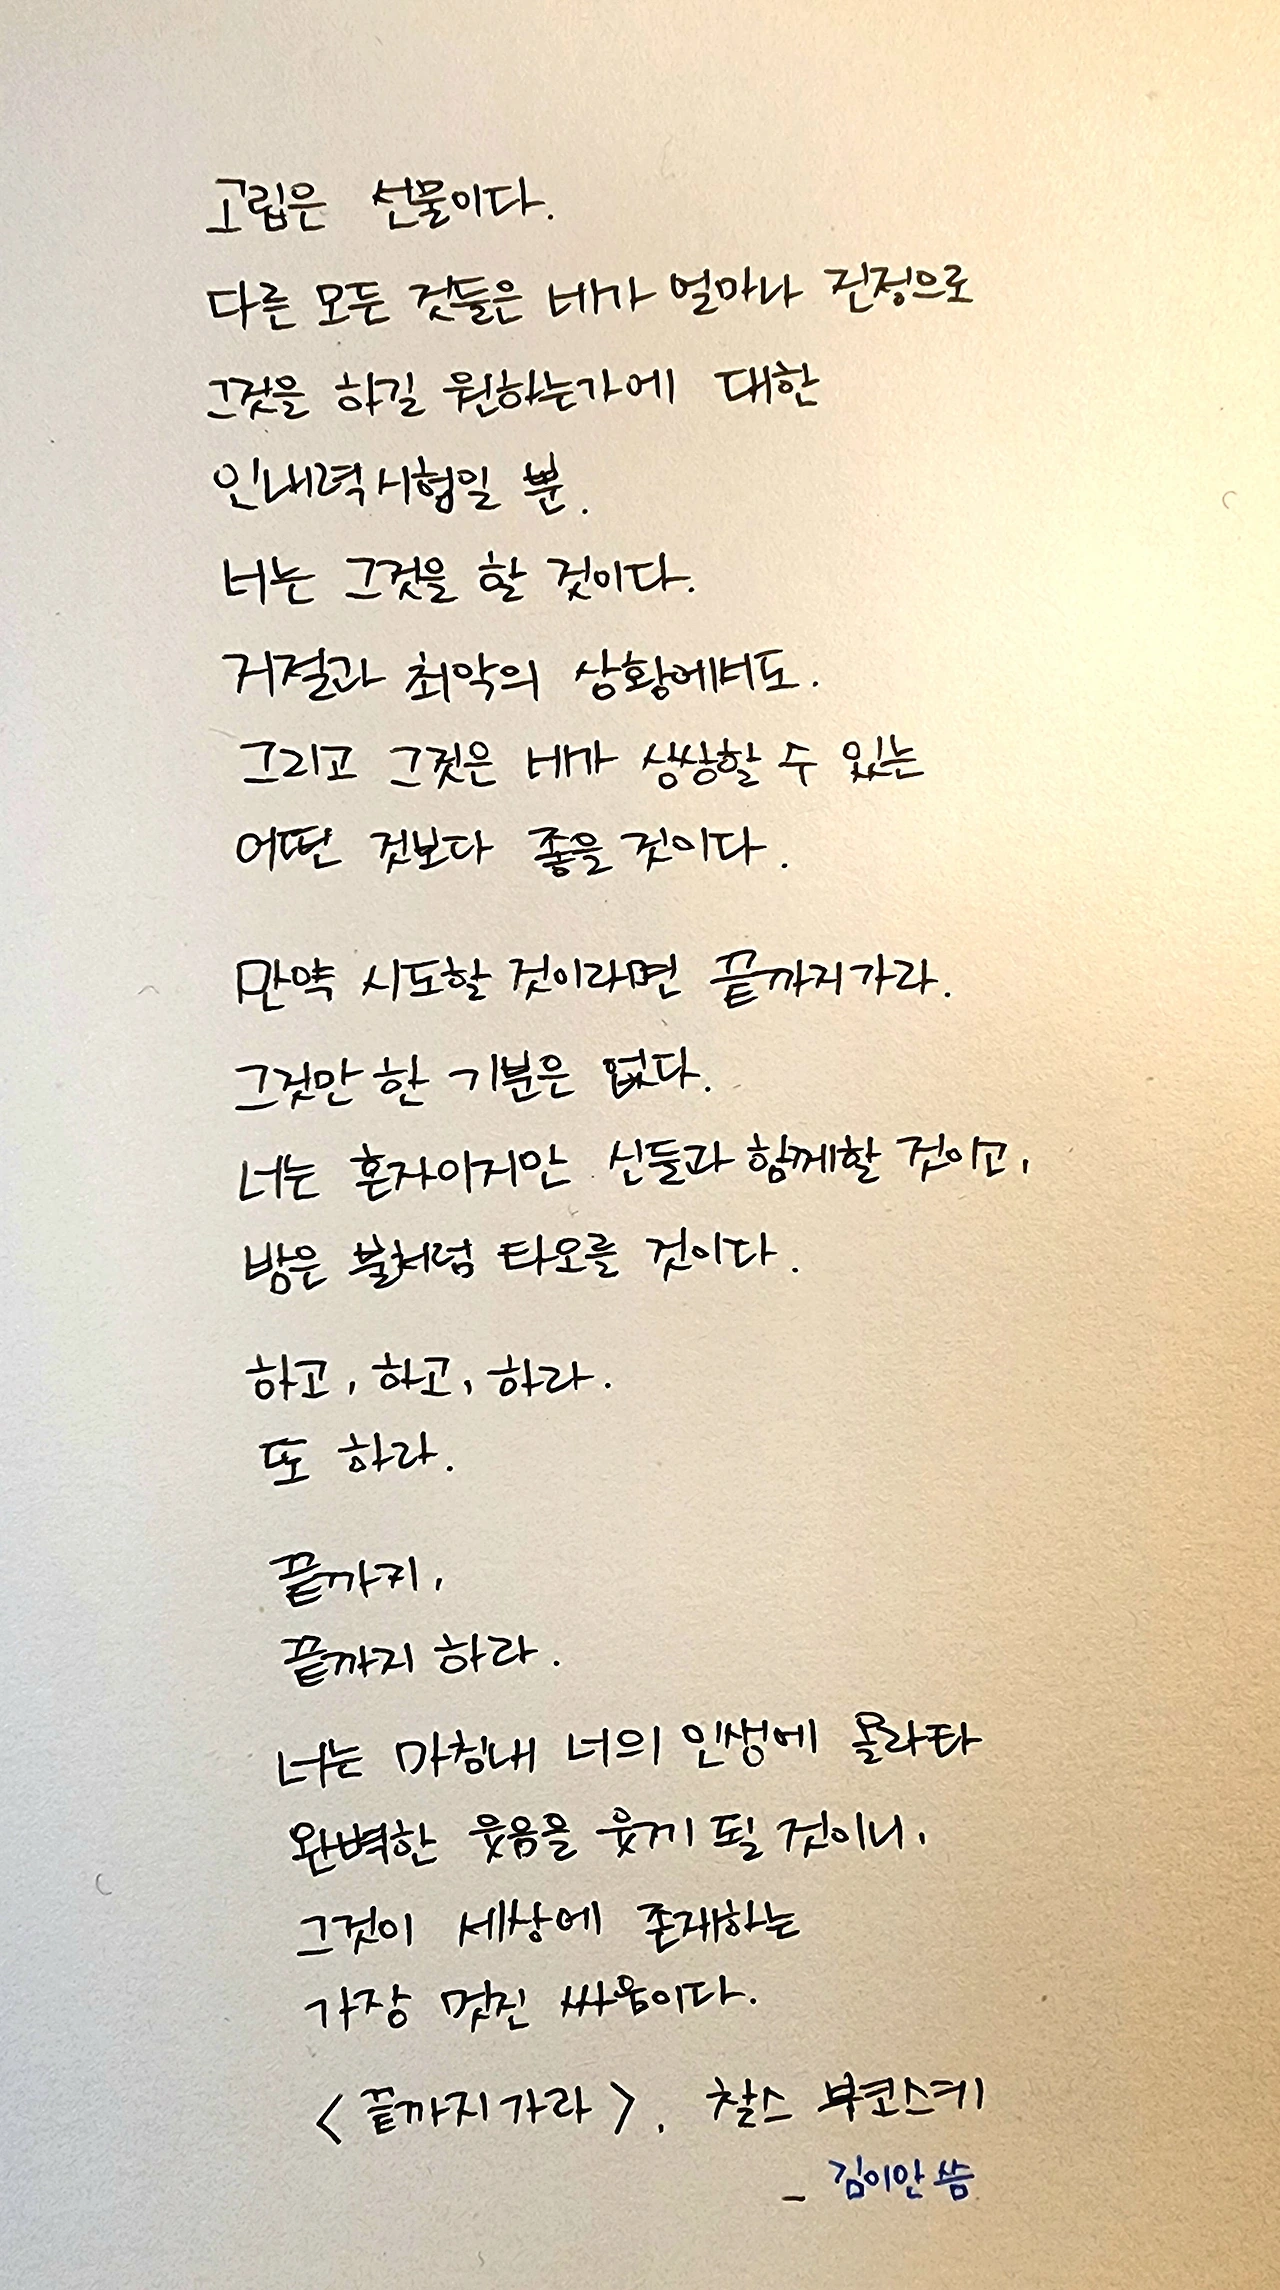 고립은 선물이다.
다른 모든 것들은 네가 얼마나 진정으로
그것을 하길 원하는가에 대한
인내력 시험일 뿐.
너는 그것을 할 것이다.
거절과 최악의 상황에서도.
그리고 그것은 네가 상상할 수 있는
어떤 것보다 좋을 것이다.
만약 시도할 것이라면 끝까지 가라.
그것만 한 기분은 없다.
너는 혼자이지만 신들과 함께할 것이고,
밤은 불처럼 타오를 것이다.
하고, 하고, 하라.
또 하라.
끝까지,
끝까지 하라.
너는 마침내 너의 인생에 올라타
완벽한 웃음을 웃게 될 것이니,
그것이 세상에 존재하는
가장 멋진 싸움이다.
<끝까지 가라>, 찰스 부코스키
_ 김이안 씀